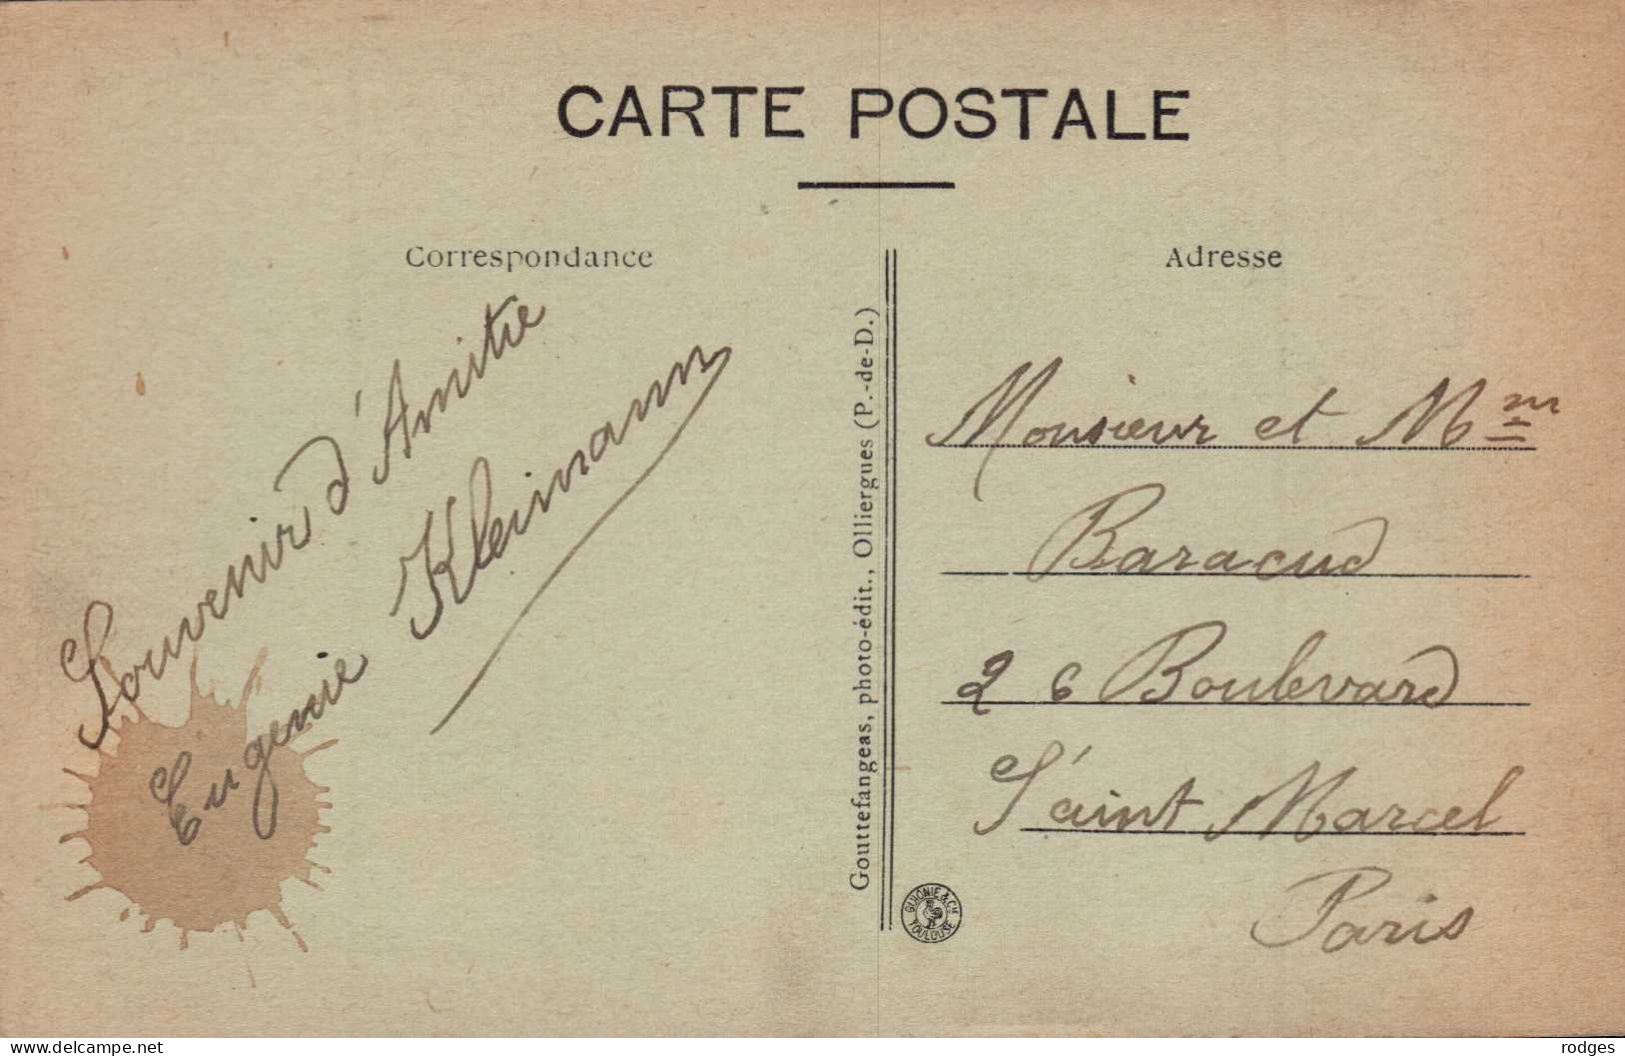 CARTE POSTALE
Correspondance
Souvenir d'Amitie
Eugenie Kleimann
Gouttefangeas, photo-édit., Olliergues (P.-de-D.)
GUIONIE & Cie
TOULOUSE
Adresse
Monsieur et Mm
Baracud
26 Boulevard
Saint Marcel
Paris
www.delcampe.net
rodges